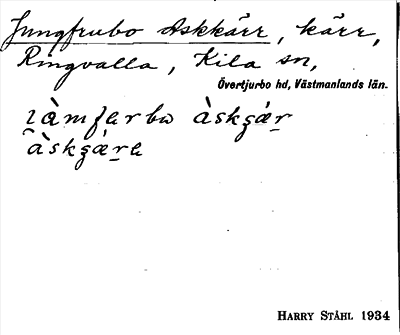 Jungfrubo Askkärr, kärr,
Ringvalla, Kila sn,
Övertjurbo hd, Västmanlands län.
àskʒǽr̠
àskʒǽr̠a
HARRY STÅHL 1934